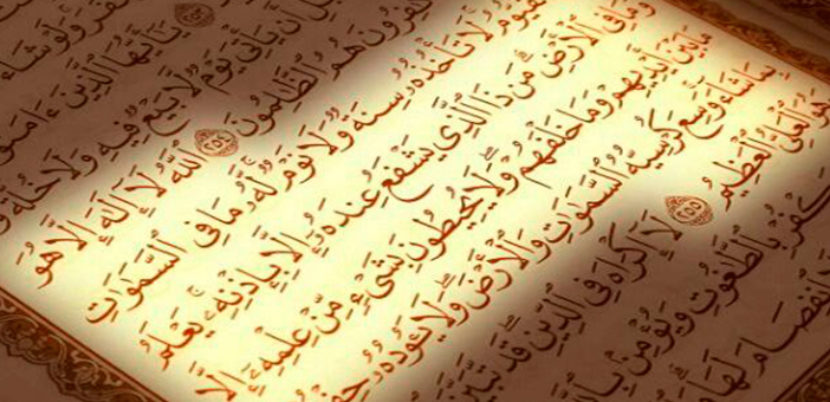 وَلَوْ شَآءَ
يَـٰٓأَيُّهَا ٱلَّذِينَ ءَامَنُوٓا۟
أَن يَأْتِىَ يَوْمٌ لَّا بَيْعٌ فِيهِ وَلَا خُلَّةٌ
هُمُ ٱلظَّـٰلِمُونَ ٢٥٤ ٱللَّهُ لَآ إِلَـٰهَ إِلَّا هُوَ
لَا تَأْخُذُهُۥ سِنَةٌ وَلَا نَوْمٌ لَّهُۥ مَا فِى ٱلسَّمَـٰوَٰتِ
وَمَا فِى ٱلْأَرْضِ مَن ذَا ٱلَّذِى يَشْفَعُ عِندَهُۥٓ إِلَّا بِإِذْنِهِۦ يَعْلَمُ
مَا بَيْنَ أَيْدِيهِمْ وَمَا خَلْفَهُمْ وَلَا يُحِيطُونَ بِشَىْءٍ مِّنْ عِلْمِهِۦٓ إِلَّا
بِمَا شَآءَ وَسِعَ كُرْسِيُّهُ ٱلسَّمَـٰوَٰتِ وَٱلْأَرْضَ وَلَا يَـُٔودُهُۥ
وَهُوَ ٱلْعَلِىُّ ٱلْعَظِيمُ ٢٥٥ لَآ إِكْرَاهَ فِى ٱلدِّينِ قَد تَّبَيَّنَ
يَكْفُرْ بِٱلطَّـٰغُوتِ وَيُؤْمِنۢ
ٱنفِصَامَ لَهَا